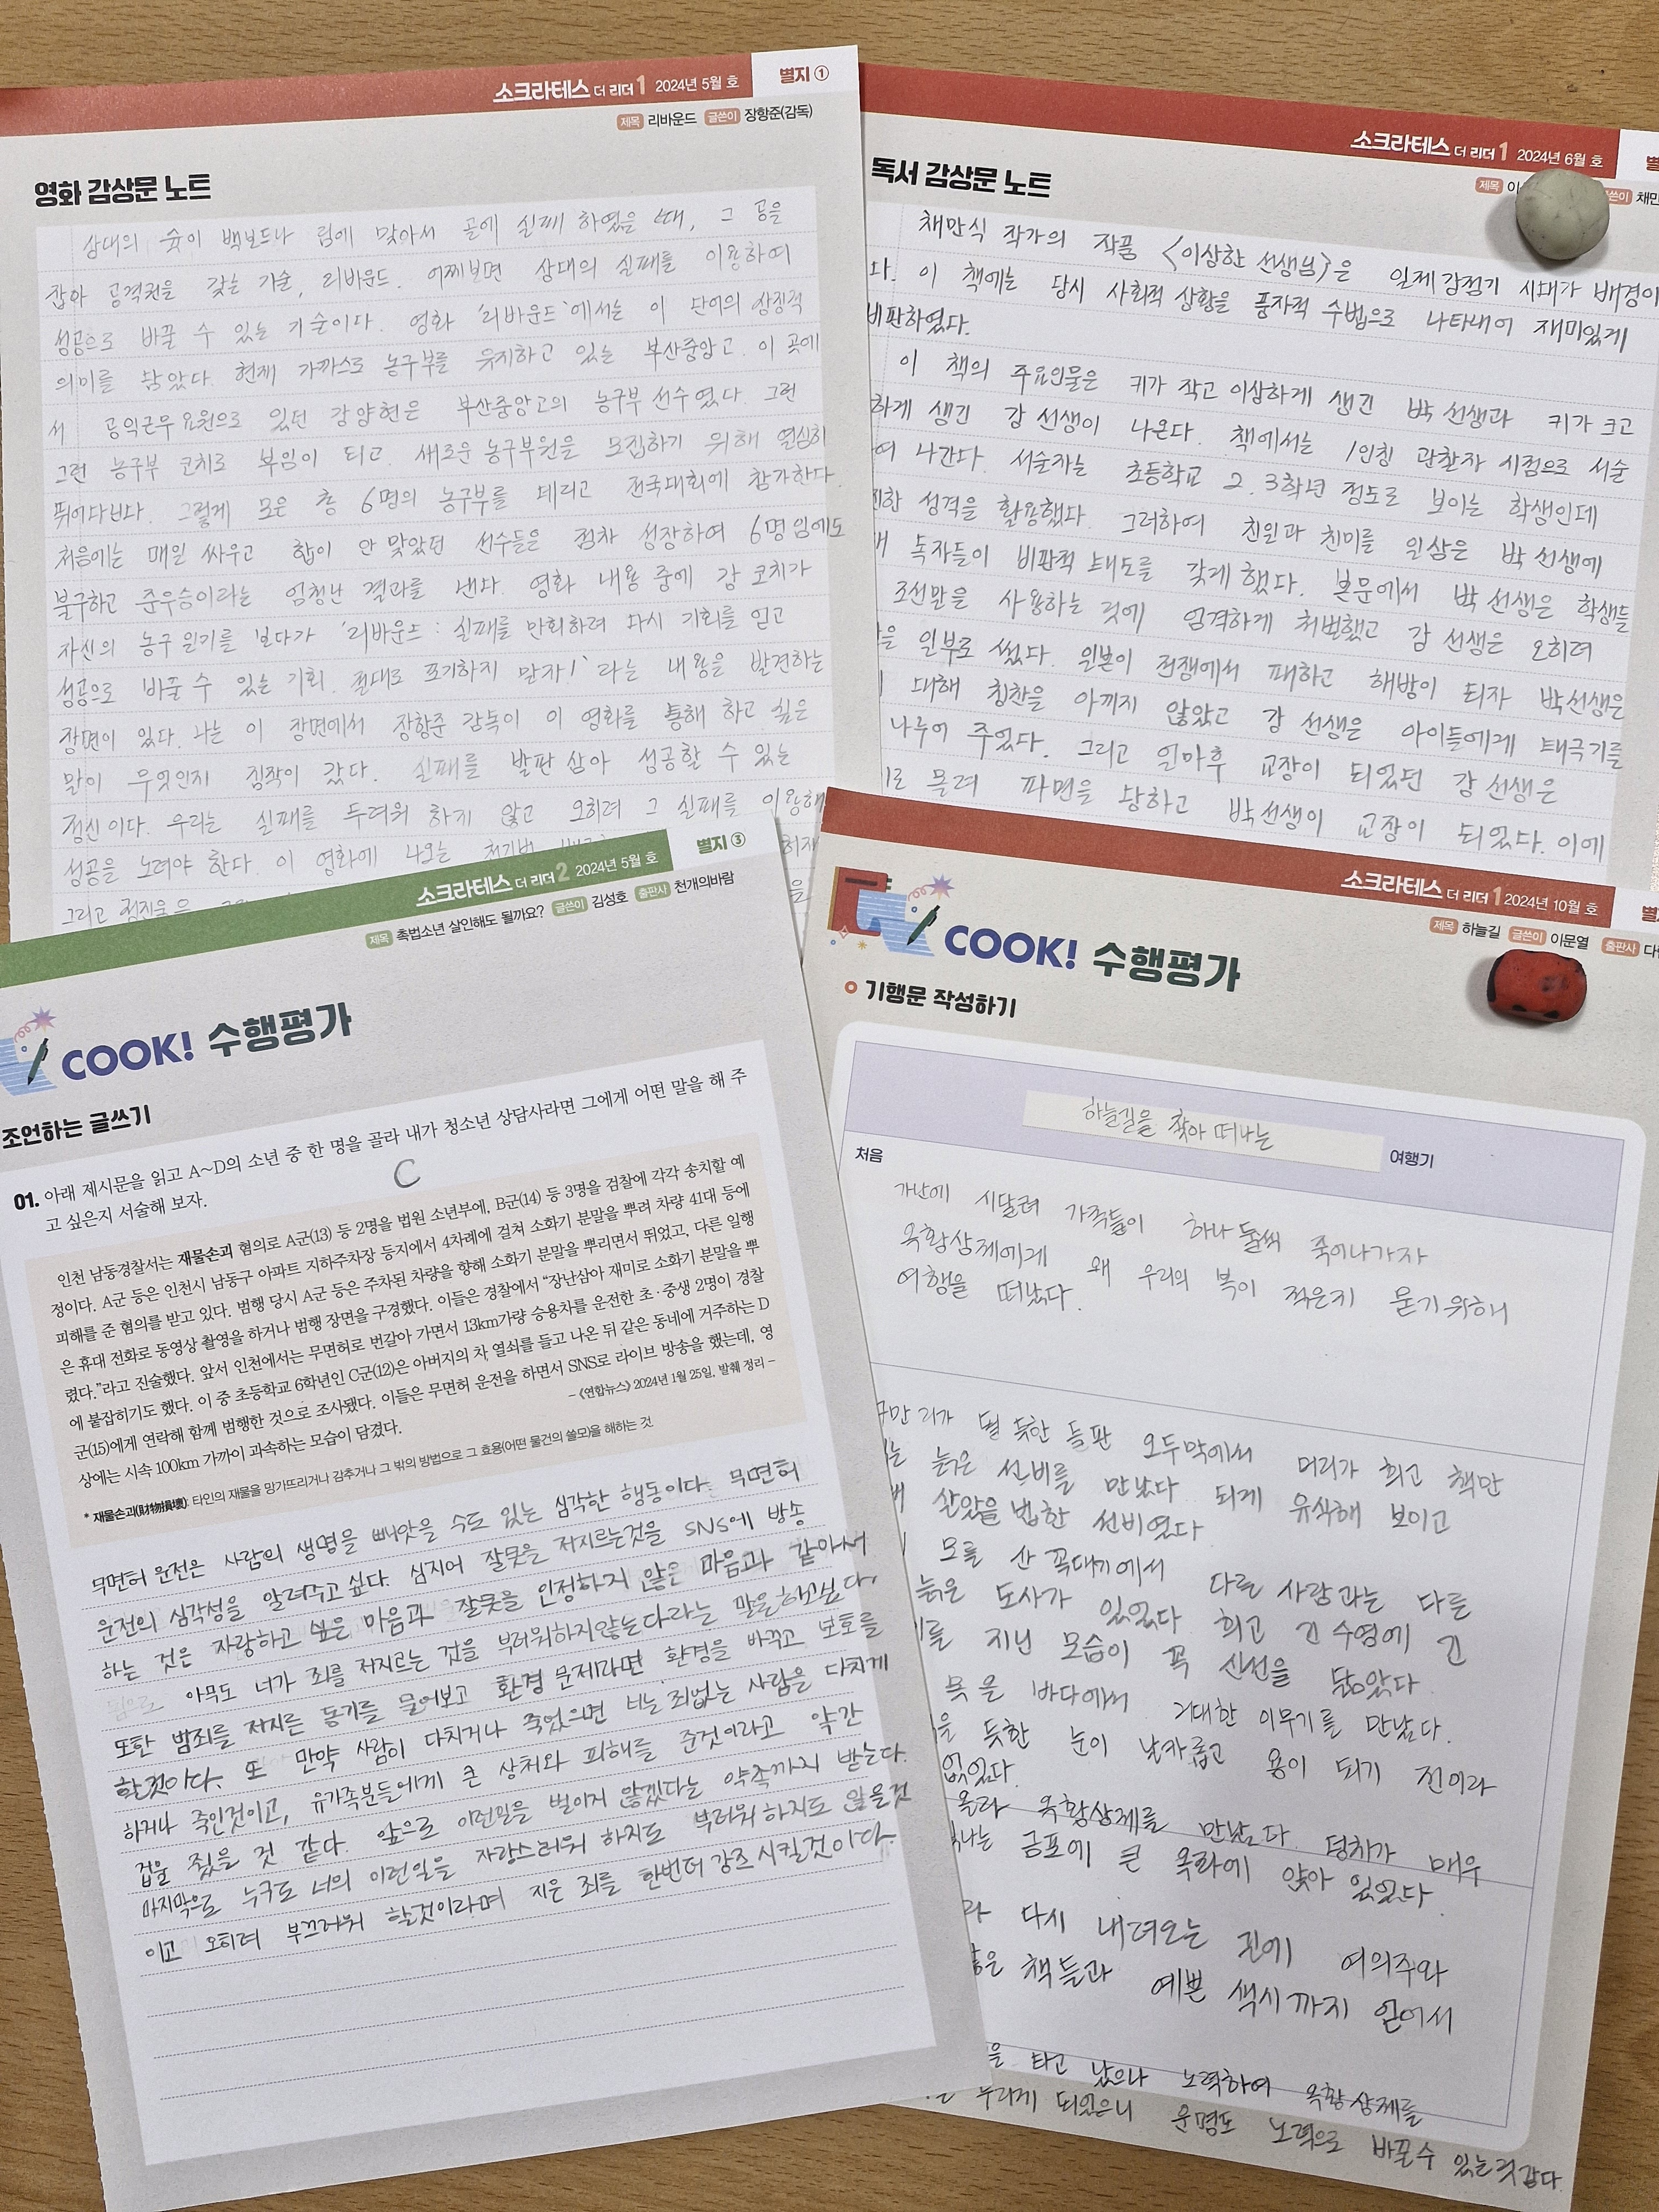 소크라테스 더 리더 1 2024년 5월 호 별지 ①
제목 리바운드 글쓴이 장항준(감독)
영화 감상문 노트
상대의 슛이 백보드나 림에 맞아서 골에 실패 하였을 때, 그 공을
잡아 공격권을 갖는 기술, 리바운드. 어찌보면 상대의 실패를 이용하여
성공으로 바꿀 수 있는 기술이다. 영화 '리바운드'에서는 이 단어의 상징적
의미를 담았다. 현재 가까스로 농구부를 유지하고 있는 부산중앙고. 이 곳에
서 공익근무요원으로 있던 강양현은 부산중앙고의 농구부 선수였다. 그런
그런 농구부 코치로 부임이 되고, 새로운 농구부원을 모집하기 위해 열심히
뛰어다닌다. 그렇게 모은 총 6명의 농구부를 데리고 전국대회에 참가한다.
처음에는 매일 싸우고 합이 안 맞았던 선수들은 점차 성장하여 6명임에도
불구하고 준우승이라는 엄청난 결과를 낸다. 영화 내용 중에 강 코치가
자신의 농구 일기를 보다가 '리바운드 : 실패를 만회하려 다시 기회를 얻고
성공으로 바꿀 수 있는 기회. 절대로 포기하지 말자!' 라는 내용을 발견하는
장면이 있다. 나는 이 장면에서 장항준 감독이 이 영화를 통해 하고 싶은
말이 무엇인지 짐작이 갔다. 실패를 발판 삼아 성공할 수 있는
정신이다. 우리는 실패를 두려워 하지 않고 오히려 그 실패를 이용해
성공을 노려야 한다. 이 영화에 나오는
그리고
소크라테스 더 리더 1 2024년 6월 호
제목 글쓴이
독서 감상문 노트
채만식 작가의 작품 <이상한 선생님>은 일제강점기 시대가 배경이
다. 이 책에는 당시 사회적 상황을 풍자적 수법으로 나타내어 재미있게
비판하였다.
이 책의 주요인물은 키가 작고 이상하게 생긴 박 선생과 키가 크고
하게 생긴 강 선생이 나온다. 책에서는 1인칭 관찰자 시점으로 서술
여 나간다. 서술자는 초등학교 2, 3학년 정도로 보이는 학생인데
성격을 활용했다. 그러하여 친일과 친미를 일삼은 박 선생에
독자들이 비판적 태도를 갖게 했다. 본문에서 박 선생은 학생들
조선말을 사용하는 것에 엄격하게 처벌했고 강 선생은 오히려
일부로 썼다. 일본이 전쟁에서 패하고 해방이 되자 박선생은
대해 칭찬을 아끼지 않았고 강 선생은 아이들에게 태극기를
나누어 주었다. 그리고 얼마후 교장이 되었던 강 선생은
로 몰려 파면을 당하고 박선생이 교장이 되었다. 이에
소크라테스 더 리더 2 2024년 5월 호 별지 ③
제목 촉법소년 살인해도 될까요? 글쓴이 김성호 출판사 천개의바람
COOK! 수행평가
조언하는 글쓰기
01. 아래 제시문을 읽고 A~D의 소년 중 한 명을 골라 내가 청소년 상담사라면 그에게 어떤 말을 해 주
고 싶은지 서술해 보자.
C
인천 남동경찰서는 재물손괴* 혐의로 A군(13) 등 2명을 법원 소년부에, B군(14) 등 3명을 검찰에 각각 송치할 예
정이다. A군 등은 인천시 남동구 아파트 지하주차장 등지에서 4차례에 걸쳐 소화기 분말을 뿌려 차량 41대 등에
피해를 준 혐의를 받고 있다. 범행 당시 A군 등은 주차된 차량을 향해 소화기 분말을 뿌리면서 뛰었고, 다른 일행
은 휴대 전화로 동영상 촬영을 하거나 범행 장면을 구경했다. 이들은 경찰에서 “장난삼아 재미로 소화기 분말을 뿌
렸다.”라고 진술했다. 앞서 인천에서는 무면허로 번갈아 가면서 13km가량 승용차를 운전한 초·중생 2명이 경찰
에 붙잡히기도 했다. 이 중 초등학교 6학년인 C군(12)은 아버지의 차 열쇠를 들고 나온 뒤 같은 동네에 거주하는 D
군(15)에게 연락해 함께 범행한 것으로 조사됐다. 이들은 무면허 운전을 하면서 SNS로 라이브 방송을 했는데, 영
상에는 시속 100km 가까이 과속하는 모습이 담겼다.
– 《연합뉴스》 2024년 1월 25일, 발췌 정리 –
* 재물손괴(財物損壞): 타인의 재물을 망가뜨리거나 감추거나 그 밖의 방법으로 그 효용(어떤 물건의 쓸모)을 해하는 것
무면허 운전은 사람의 생명을 빼앗을 수도 있는 심각한 행동이다. 무면허
운전의 심각성을 알려주고 싶다. 심지어 잘못을 저지르는것을 SNS에 방송
하는 것은 자랑하고 싶은 마음과 잘못을 인정하지 않은 마음과 같아서
아무도 너가 죄를 저지르는 것을 부러워하지않는다라는 말을하고싶다.
또한 범죄를 저지른 동기를 물어보고 환경 문제라면 환경을 바꾸고 보호를
할것이다. 또 만약 사람이 다치거나 죽었으면 너는 죄없는 사람을 다치게
하거나 죽인것이고, 유가족분들에게 큰 상처와 피해를 준것이라고 약간
겁을 줬을 것 같다. 앞으로 이런일을 벌이지 않겠다는 약속까지 받는다.
마지막으로 누구도 너의 이런일을 자랑스러워 하지도 부러워하지도 않을것
이고 오히려 부끄러워 할것이라며 지은 죄를 한번더 강조시킬것이다.
소크라테스 더 리더 1 2024년 10월 호
제목 하늘길 글쓴이 이문열 출판사
COOK! 수행평가
기행문 작성하기
하늘길을 찾아 떠나는 여행기
처음
가난에 시달려 가족들이 하나 둘씩 죽어나가자
옥황상제에게 왜 우리의 복이 적은지 묻기위해
여행을 떠났다.
구만리가 될 듯한 들판 오두막에서 머리가 희고 책만
늙은 선비를 만났다 되게 유식해 보이고
살았을 법한 선비였다
모를 산 꼭대기에서
늙은 도사가 있었다 다른 사람과는 다른
를 지닌 모습이 꼭 신선을 닮았다 희고 긴 수염에 긴
바다에서 거대한 이무기를 만났다.
듯한 눈이 날카롭고 용이 되기 전이라
없었다.
올라 옥황상제를 만났다. 덩치가 매우
금포에 큰 옥좌에 앉아 있었다.
다시 내려오는 길에 여의주와
책들과 예쁜 색시까지 얻어서
을 타고 났으나 노력하여 옥황상제를
누리게 되었으니 운명도 노력으로 바꿀수 있는것같다